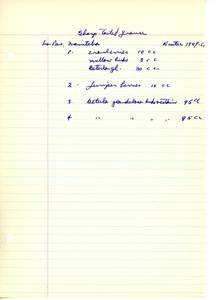 Sharp-Tailed Grouse
Le Pas, Manitoba Winter
1- cranberries 10 cc
willow buds 5 cc
30 cc
2 - Juniper berries 10 cc
3 - Betula glandulosa buds 95 cc
4 " " " 95 cc